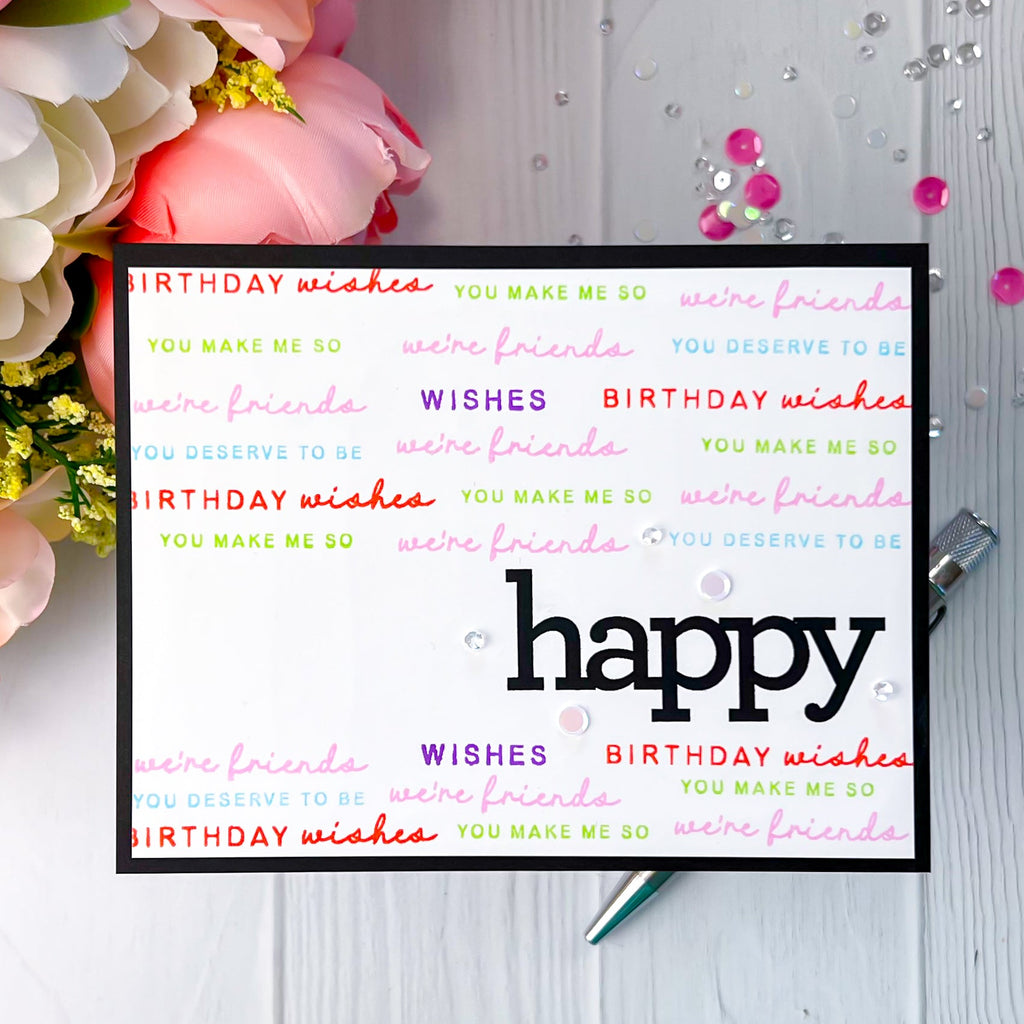 BIRTHDAY wishes YOU MAKE ME SO we're friends
YOU MAKE ME SO we're friends YOU DESERVE TO BE
we're friends WISHES BIRTHDAY wishes
YOU DESERVE TO BE we're friends YOU MAKE ME SO
BIRTHDAY wishes YOU MAKE ME SO we're friends
YOU MAKE ME SO we're friends YOU DESERVE TO BE
happy
we're friends WISHES BIRTHDAY wishes
YOU DESERVE TO BE we're friends YOU MAKE ME SO
BIRTHDAY wishes YOU MAKE ME SO we're friends